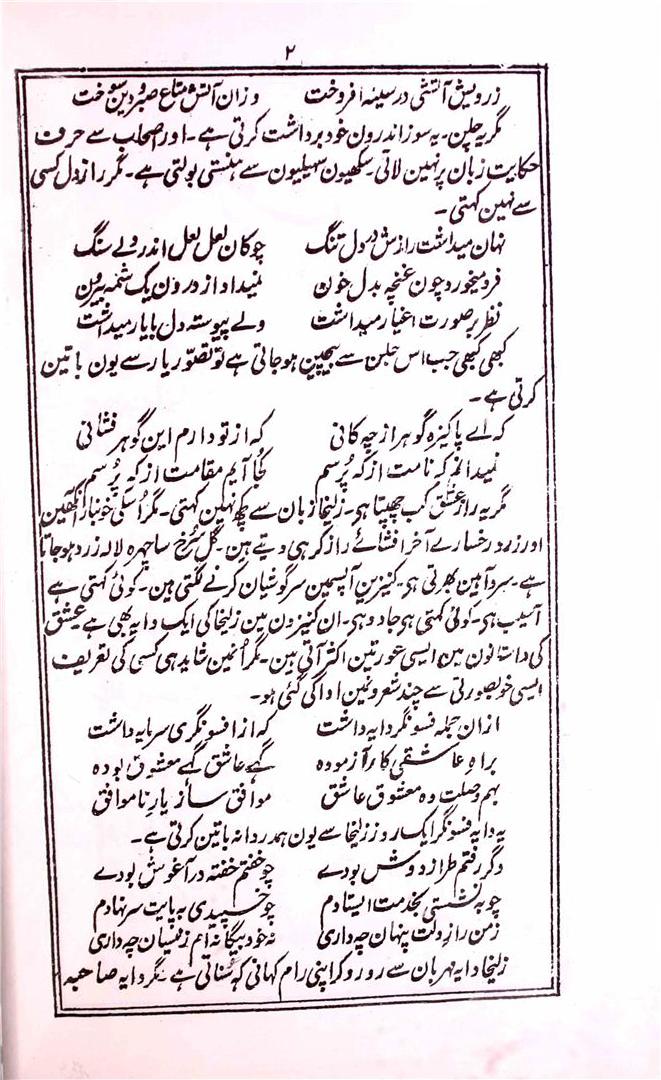 ۲
زرویش آتشی در سینہ افروخت وزان آتش متاع صبر و دین سوخت
مگر یہ جلن۔ یہ سوز اندرون خود برداشت کرتی ہے۔ اور اصحاب سے حرف
حکایت زبان پر نہین لاتی۔ سکھیون سہیلیون سے ہنستی بولتی ہے۔ مگر راز دل کسی
سے نہین کہتی۔
نہان میداشت رازش در دل تنگ چو کان لعل لعل اندر دلے سنگ
فرو میخورد چون غنچہ بدل خون نمیداد از درون یک شمہ بیرون
نظر بر صورت اغیار میداشت ولے پیوستہ دل با یار میداشت
کبھی کبھی جب اس جلن سے بیچین ہوجاتی ہے تو تصوّر یار سے یون باتین
کرتی ہے۔
کہ اے پاکیزہ گوہر از چہ کانی کہ از تو دارم این گوہر فشانی
نمیدانم کہ نامت از کہ پُرسم کجا آیم مقامت از کہ پُرسم
مگر یہ راز عشق کب چھپتا ہی۔ زلیخا زبان سے کچھ نہین کہتی۔ مگر اُسکی خونبار آنکھین
اور زرد رخسارے آخر افشاے راز کر ہی دیتے ہین۔ گل سُرخ سا چہرہ لالہ زرد ہو جاتا
ہے۔ سرد آہین بھرتی ہی۔ کنیزین آپسمین سرگوشیان کرنے لگتی ہین۔ کوئی کہتی ہے
آسیب ہی۔ کوئی کہتی ہی جادو ہی۔ ان کنیزون مین زلیخا کی ایک دایہ بھی ہے۔ عشق
کی داستانون مین ایسی عورتین اکثر آتی ہین۔ مگر اُنمین شاید ہی کسی کی تعریف
ایسی خوبصورتی سے چند شعرونمین ادا کی گئی ہو۔
ازان جملہ فسونگر دایہ داشت کہ از افسونگری سرمایہ داشت
براہ عاشقی کار آزمودہ گہے عاشق گہے معشوق بودہ
بہم وصلت دہ معشوق عاشق موافق ساز یار ناموافق
یہ دایہ فسونگر ایک روز زلیخا سے یون ہمدردانہ باتین کرتی ہے۔
دگر رفتم طراز دوش بودے چو خفتم خفتہ در آغوش بودے
چو بنشستی بخدمت ایستادم چو خسپیدی بہ پایت سر نہادم
زمن راز دلت پنہان چہ داری نہ خود بیگانہ ام زینسان چہ داری
زلیخا دایہ مہربان سے رو رو کر اپنی رام کہانی کہ سُناتی ہے۔ مگر دایہ صاحبہ